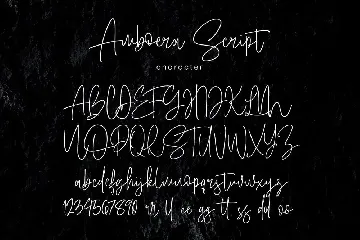 Amboera Script
character
ABCDEFGHIJKLM
NOPQRSTUVWXYZ
abcdefghijklmnopqrstuvwxyz
1234567890 rr ll ee gg tt ss dd oo